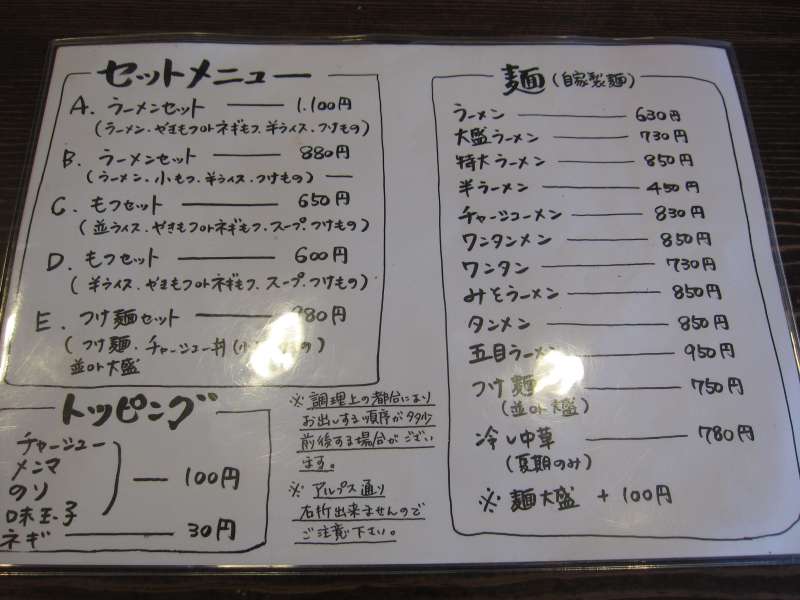 セットメニュー
A. ラーメンセット 1.100円
(ラーメン.やきもつorネギもつ.半ライス.つけもの)
B. ラーメンセット 880円
(ラーメン.小もつ.半ライス.つけもの)
C. もつセット 650円
(並ライス.やきもつorネギもつ.スープ.つけもの)
D. もつセット 600円
(半ライス.やきもつorネギもつ.スープ.つけもの)
E. つけ麺セット 80円
(つけ麺.チャーシュー丼(小) の)
並or大盛
トッピング
チャーシュー
メンマ
のり
味玉子
100円
ネギ 30円
※調理上の都合により
お出しする順序が多少
前後する場合がござい
ます。
※アルプス通り
右折出来ませんので
ご注意下さい。
麺(自家製麺)
ラーメン 630円
大盛ラーメン 730円
特大ラーメン 850円
半ラーメン 450円
チャーシューメン 830円
ワンタンメン 850円
ワンタン 730円
みそラーメン 850円
タンメン 850円
五目ラーメン 950円
つけ麺 750円
(並or大盛)
冷し中華 780円
(夏期のみ)
※麺大盛 +100円